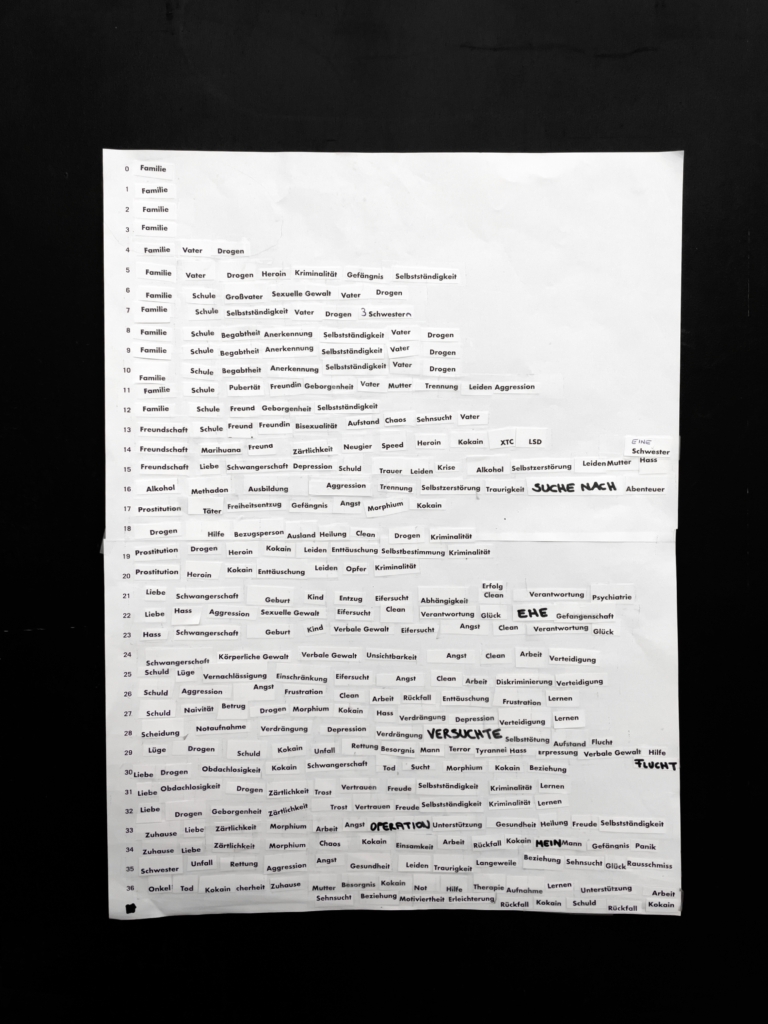 0 Familie
1 Familie
2 Familie
3 Familie
4 Familie Vater Drogen
5 Familie Vater Drogen Heroin Kriminalität Gefängnis Selbstständigkeit
6 Familie Schule Großvater Sexuelle Gewalt Vater Drogen
7 Familie Schule Selbstständigkeit Vater Drogen 3 Schwestern
8 Familie Schule Begabtheit Anerkennung Selbstständigkeit Vater Drogen
9 Familie Schule Begabtheit Anerkennung Selbstständigkeit Vater Drogen
10 Familie Schule Begabtheit Anerkennung Selbstständigkeit Vater Drogen
11 Familie Schule Pubertät Freundin Geborgenheit Vater Mutter Trennung Leiden Aggression
12 Familie Schule Freund Geborgenheit Selbstständigkeit
13 Freundschaft Schule Freund Freundin Bisexualität Aufstand Chaos Sehnsucht Vater
14 Freundschaft Marihuana Freund Zärtlichkeit Neugier Speed Heroin Kokain XTC LSD EINE Schwester
15 Freundschaft Liebe Schwangerschaft Depression Schuld Trauer Leiden Krise Alkohol Selbstzerstörung Leiden Mutter Hass
16 Alkohol Methadon Ausbildung Aggression Trennung Selbstzerstörung Traurigkeit SUCHE NACH Abenteuer
17 Prostitution Täter Freiheitsentzug Gefängnis Angst Morphium Kokain
18 Drogen Hilfe Bezugsperson Ausland Heilung Clean Drogen Kriminalität
19 Prostitution Drogen Heroin Kokain Leiden Enttäuschung Selbstbestimmung Kriminalität
20 Prostitution Heroin Kokain Enttäuschung Leiden Opfer Kriminalität
21 Liebe Schwangerschaft Geburt Kind Entzug Eifersucht Abhängigkeit Erfolg Clean Verantwortung Psychiatrie
22 Liebe Hass Aggression Sexuelle Gewalt Eifersucht Clean Verantwortung Glück EHE Gefangenschaft
23 Hass Schwangerschaft Geburt Kind Verbale Gewalt Eifersucht Angst Clean Verantwortung Glück
24 Schwangerschaft Körperliche Gewalt Verbale Gewalt Unsichtbarkeit Angst Clean Arbeit Verteidigung
25 Schuld Lüge Vernachlässigung Einschränkung Eifersucht Angst Clean Arbeit Diskriminierung Verteidigung
26 Schuld Aggression Angst Frustration Clean Arbeit Rückfall Enttäuschung Frustration Lernen
27 Schuld Naivität Betrug Drogen Morphium Kokain Hass Verdrängung Depression Verteidigung Lernen
28 Scheidung Notaufnahme Verdrängung Depression Verdrängung VERSUCHTE Selbsttötung Aufstand Flucht
29 Lüge Drogen Schuld Kokain Unfall Rettung Besorgnis Mann Terror Tyrannei Hass erpressung Verbale Gewalt Hilfe FLUCHT
30 Liebe Drogen Obdachlosigkeit Kokain Schwangerschaft Tod Sucht Morphium Kokain Beziehung
31 Liebe Obdachlosigkeit Drogen Zärtlichkeit Trost Vertrauen Freude Selbstständigkeit Kriminalität Lernen
32 Liebe Drogen Geborgenheit Zärtlichkeit Trost Vertrauen Freude Selbstständigkeit Kriminalität Lernen
33 Zuhause Liebe Zärtlichkeit Morphium Arbeit Angst OPERATION Unterstützung Gesundheit Heilung Freude Selbstständigkeit
34 Zuhause Liebe Zärtlichkeit Morphium Chaos Kokain Einsamkeit Arbeit Rückfall Kokain MEIN Mann Gefängnis Panik
35 Schwester Unfall Rettung Aggression Angst Gesundheit Leiden Traurigkeit Langeweile Beziehung Sehnsucht Glück Rausschmiss
36 Onkel Tod Kokain cherheit Zuhause Mutter Besorgnis Kokain Not Hilfe Therapie Aufnahme Lernen Unterstützung Arbeit
Sehnsucht Beziehung Motiviertheit Erleichterung Rückfall Kokain Schuld Rückfall Kokain